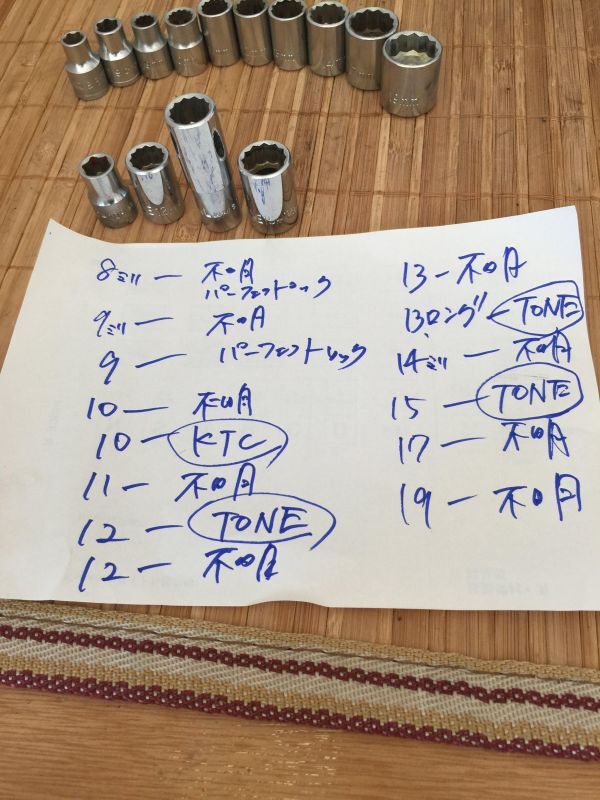 8ミリ ー 不明
パーフェクトロック
9ミリ ー 不明
9 ー パーフェクトロック
10 ー 不明
10 ー KTC
11 ー 不明
12 ー TONE
12 ー 不明
13 ー 不明
13ロング ー TONE
14ミリ ー 不明
15 ー TONE
17 ー 不明
19 ー 不明